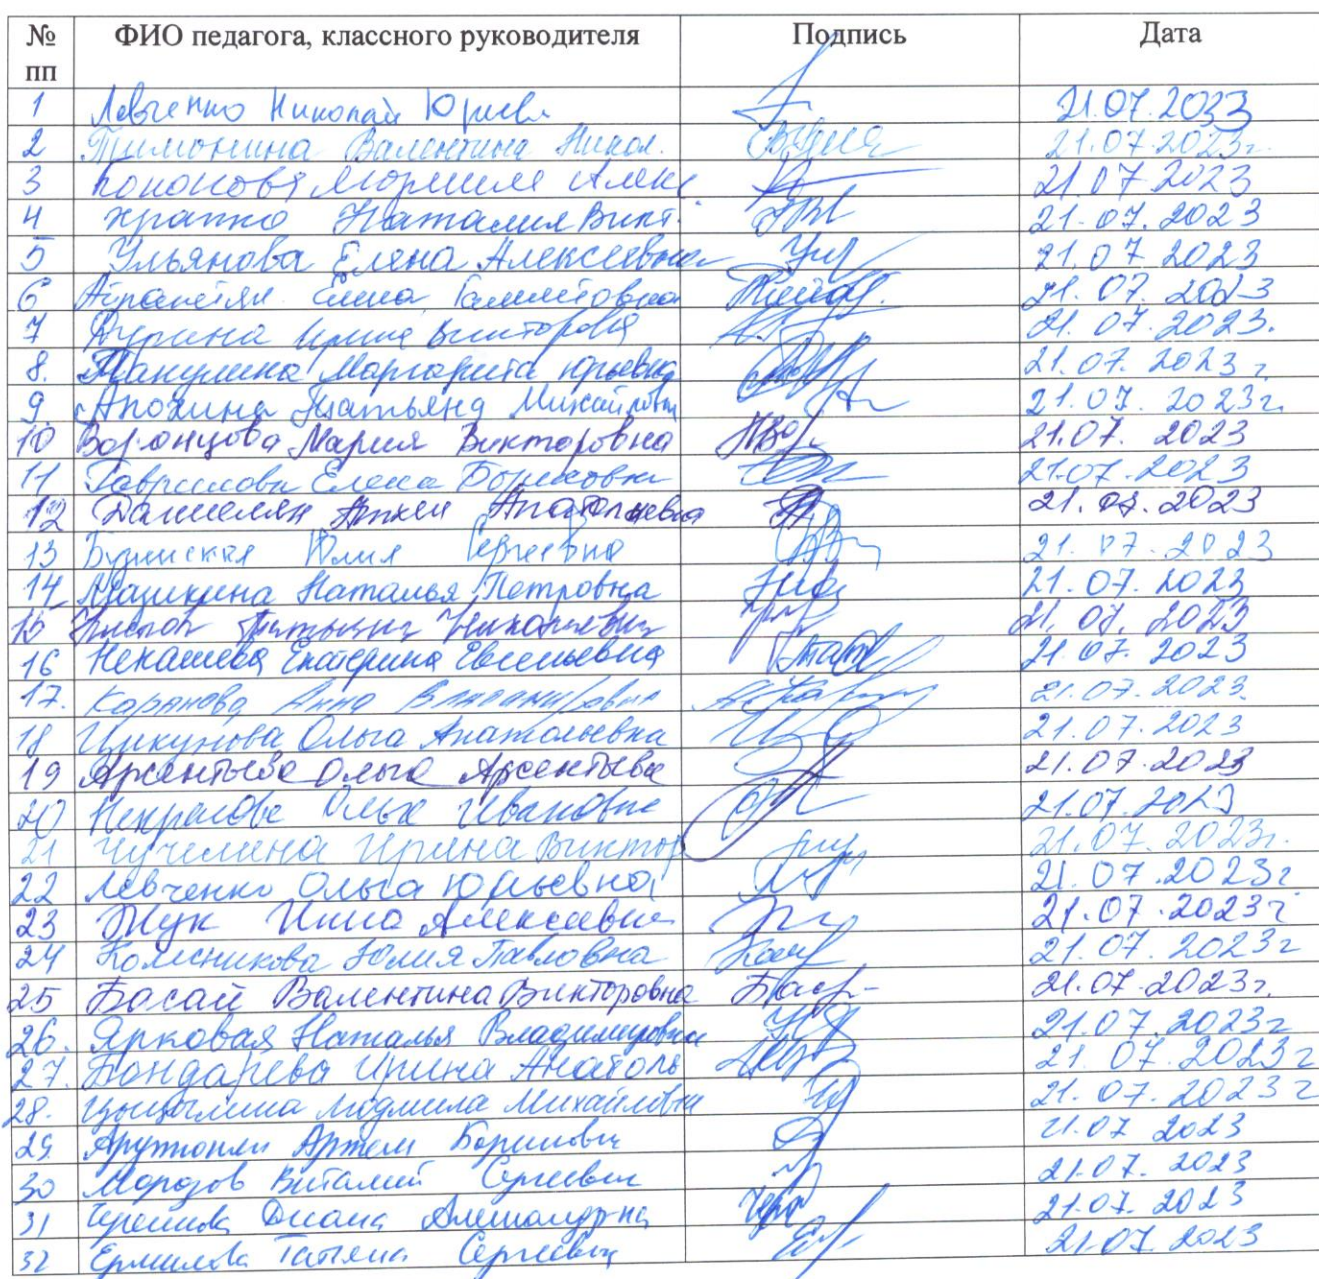 № пп ФИО педагога, классного руководителя Подпись Дата
1 Левченко Николай Юрьев 21.07.2023
2 Тимонина Валентина Никол. 21.07.2023г.
3 Кононова Людмила Алекс 21.07.2023
4 Храпко Наталия Викт. 21.07.2023
5 Ульянова Елена Алексеевна Ул 21.07.2023
6 Елена 21.07.2023
7 Ирина Викторовна 21.07.2023.
8. Маргарита Юрьевна 21.07.2023г
9 Анохина Татьяна Михайловна 21.07.2023г.
10 Воронцова Мария Викторовна 21.07.2023
11 Гаврилова Елена Борисовна 21.07.2023
12 Даниелян Анатольевна 21.07.2023
13 Юлия Сергеевна 21.07.2023
14 Машкина Наталья Петровна 21.07.2023
15 Татьяна Николаевна 21.07.2023
16 Некашева Екатерина Евгеньевна 21.07.2023
17. Каранова Анна Владимировна 21.07.2023
18 Циркунова Ольга Анатольевна 21.07.2023
19 Арсентьева Ольга Арсентьевна 21.07.2023
20 Некрасова Ольга Ивановна 21.07.2023
21 Чучелина Ирина Виктор 21.07.2023г.
22 Левченко Ольга Юрьевна 21.07.2023г
23 Жук Инна Алексеевна 21.07.2023г
24 Колесникова Юлия Павловна 21.07.2023г
25 Басай Валентина Викторовна 21.07.2023г.
26. Ярковая Наталья Владимировна 21.07.2023г
27. Бондарева Ирина Анатоль 21.07.2023г
28. Людмила Михайловна 21.07.2023г
29. Арутюнян Артем Борисович 21.07.2023
30 Морозов Виталий Сергеевич 21.07.2023
31 Диана 21.07.2023
32 Ермилова Татьяна Сергеевна 21.07.2023